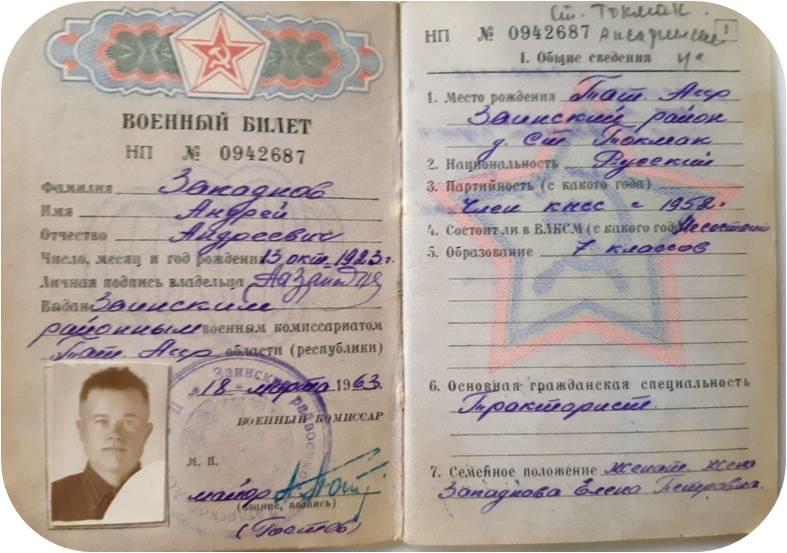 ВОЕННЫЙ БИЛЕТ
НП № 0942687
Фамилия Западнов
Имя Андрей
Отчество Андреевич
Число, месяц и год рождения 13 окт. 1923 г.
Личная подпись владельца
Выдан Заинским
районным военным комиссариатом
Тат. Асср области (республики)
"18" марта 1963.
ВОЕННЫЙ КОМИССАР
М. П.
майор
(звание, подпись)
(Ростов)
ст. Токмак
НП № 0942687
1
I. Общие сведения
1. Место рождения Тат. Асср
Заинский район
д. Ст. Токмак
2. Национальность Русский
3. Партийность (с какого года)
Член кпсс с 1952г
4. Состоит ли в ВЛКСМ (с какого года)
5. Образование 7 классов
6. Основная гражданская специальность
Тракторист
7. Семейное положение женат. жена
Западнова Елена Петровна.